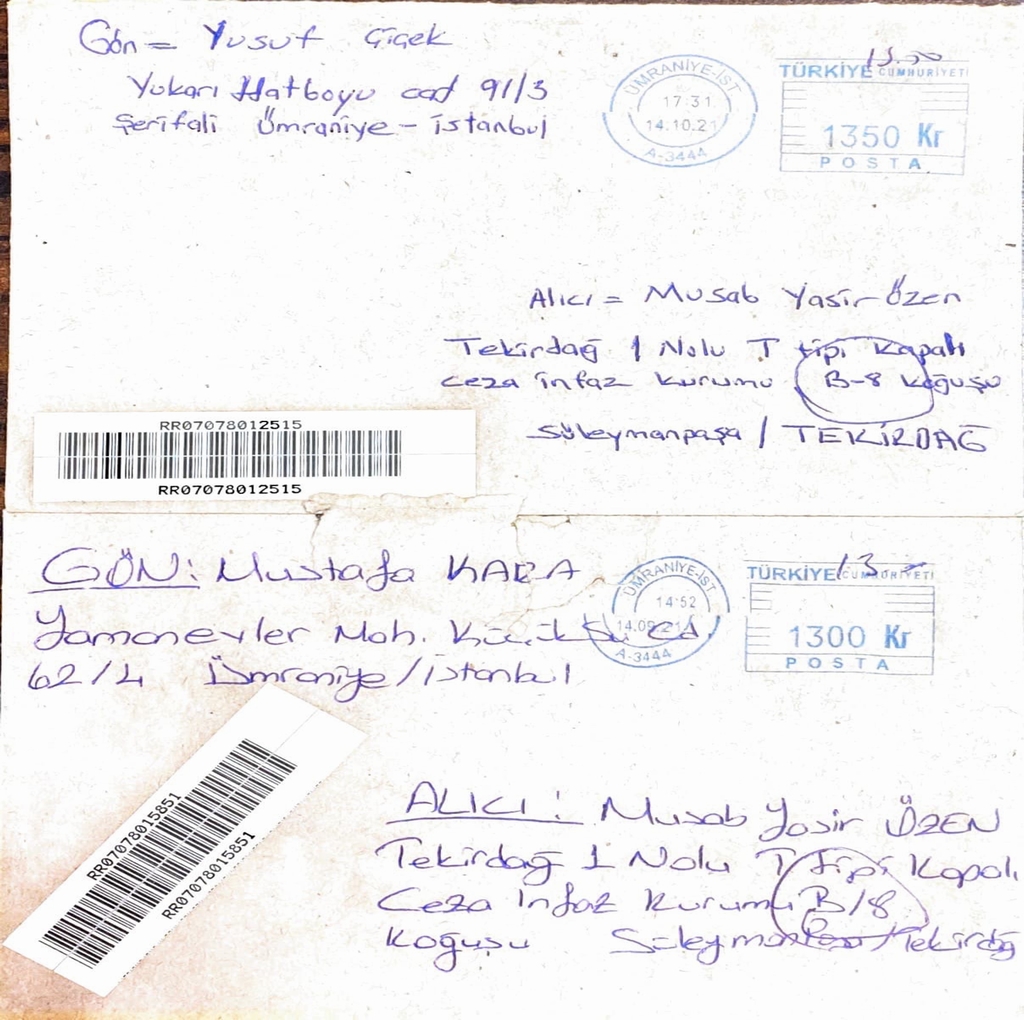 Gön = Yusuf Çiçek
Yukarı Hatboyu cad 91/3
Şerifali Ümraniye - istanbul
ÜMRANİYE-İST
17 31
14.10.21
A-3444
13.00
TÜRKİYE CUMHURİYETİ
1350 Kr
POSTA
Alıcı = Musab Yasir Özen
Tekirdağ 1 Nolu T tipi Kapalı
Ceza infaz Kurumu B-8 Koğuşu
Süleymanpaşa / TEKİRDAĞ
RR07078012515
RR07078012515
GÖN: Mustafa KARA
Yamanevler Mah. Küçüksu Cd.
62/4 Ümraniye/istanbul
ÜMRANİYE-İST
14 52
14.09.21
A-3444
13
TÜRKİYE CUMHURİYETİ
1300 Kr
POSTA
RR07078015851
RR07078015851
ALICI: Musab Yasir ÖZEN
Tekirdağ 1 Nolu T tipi Kapalı
Ceza infaz Kurumu B/8
Koğuşu Süleymanpaşa/Tekirdağ